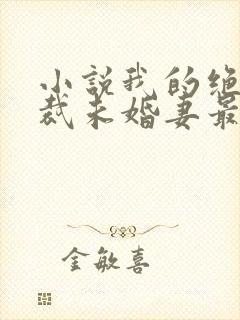 小説我的绝
裁未婚妻最
金敏喜